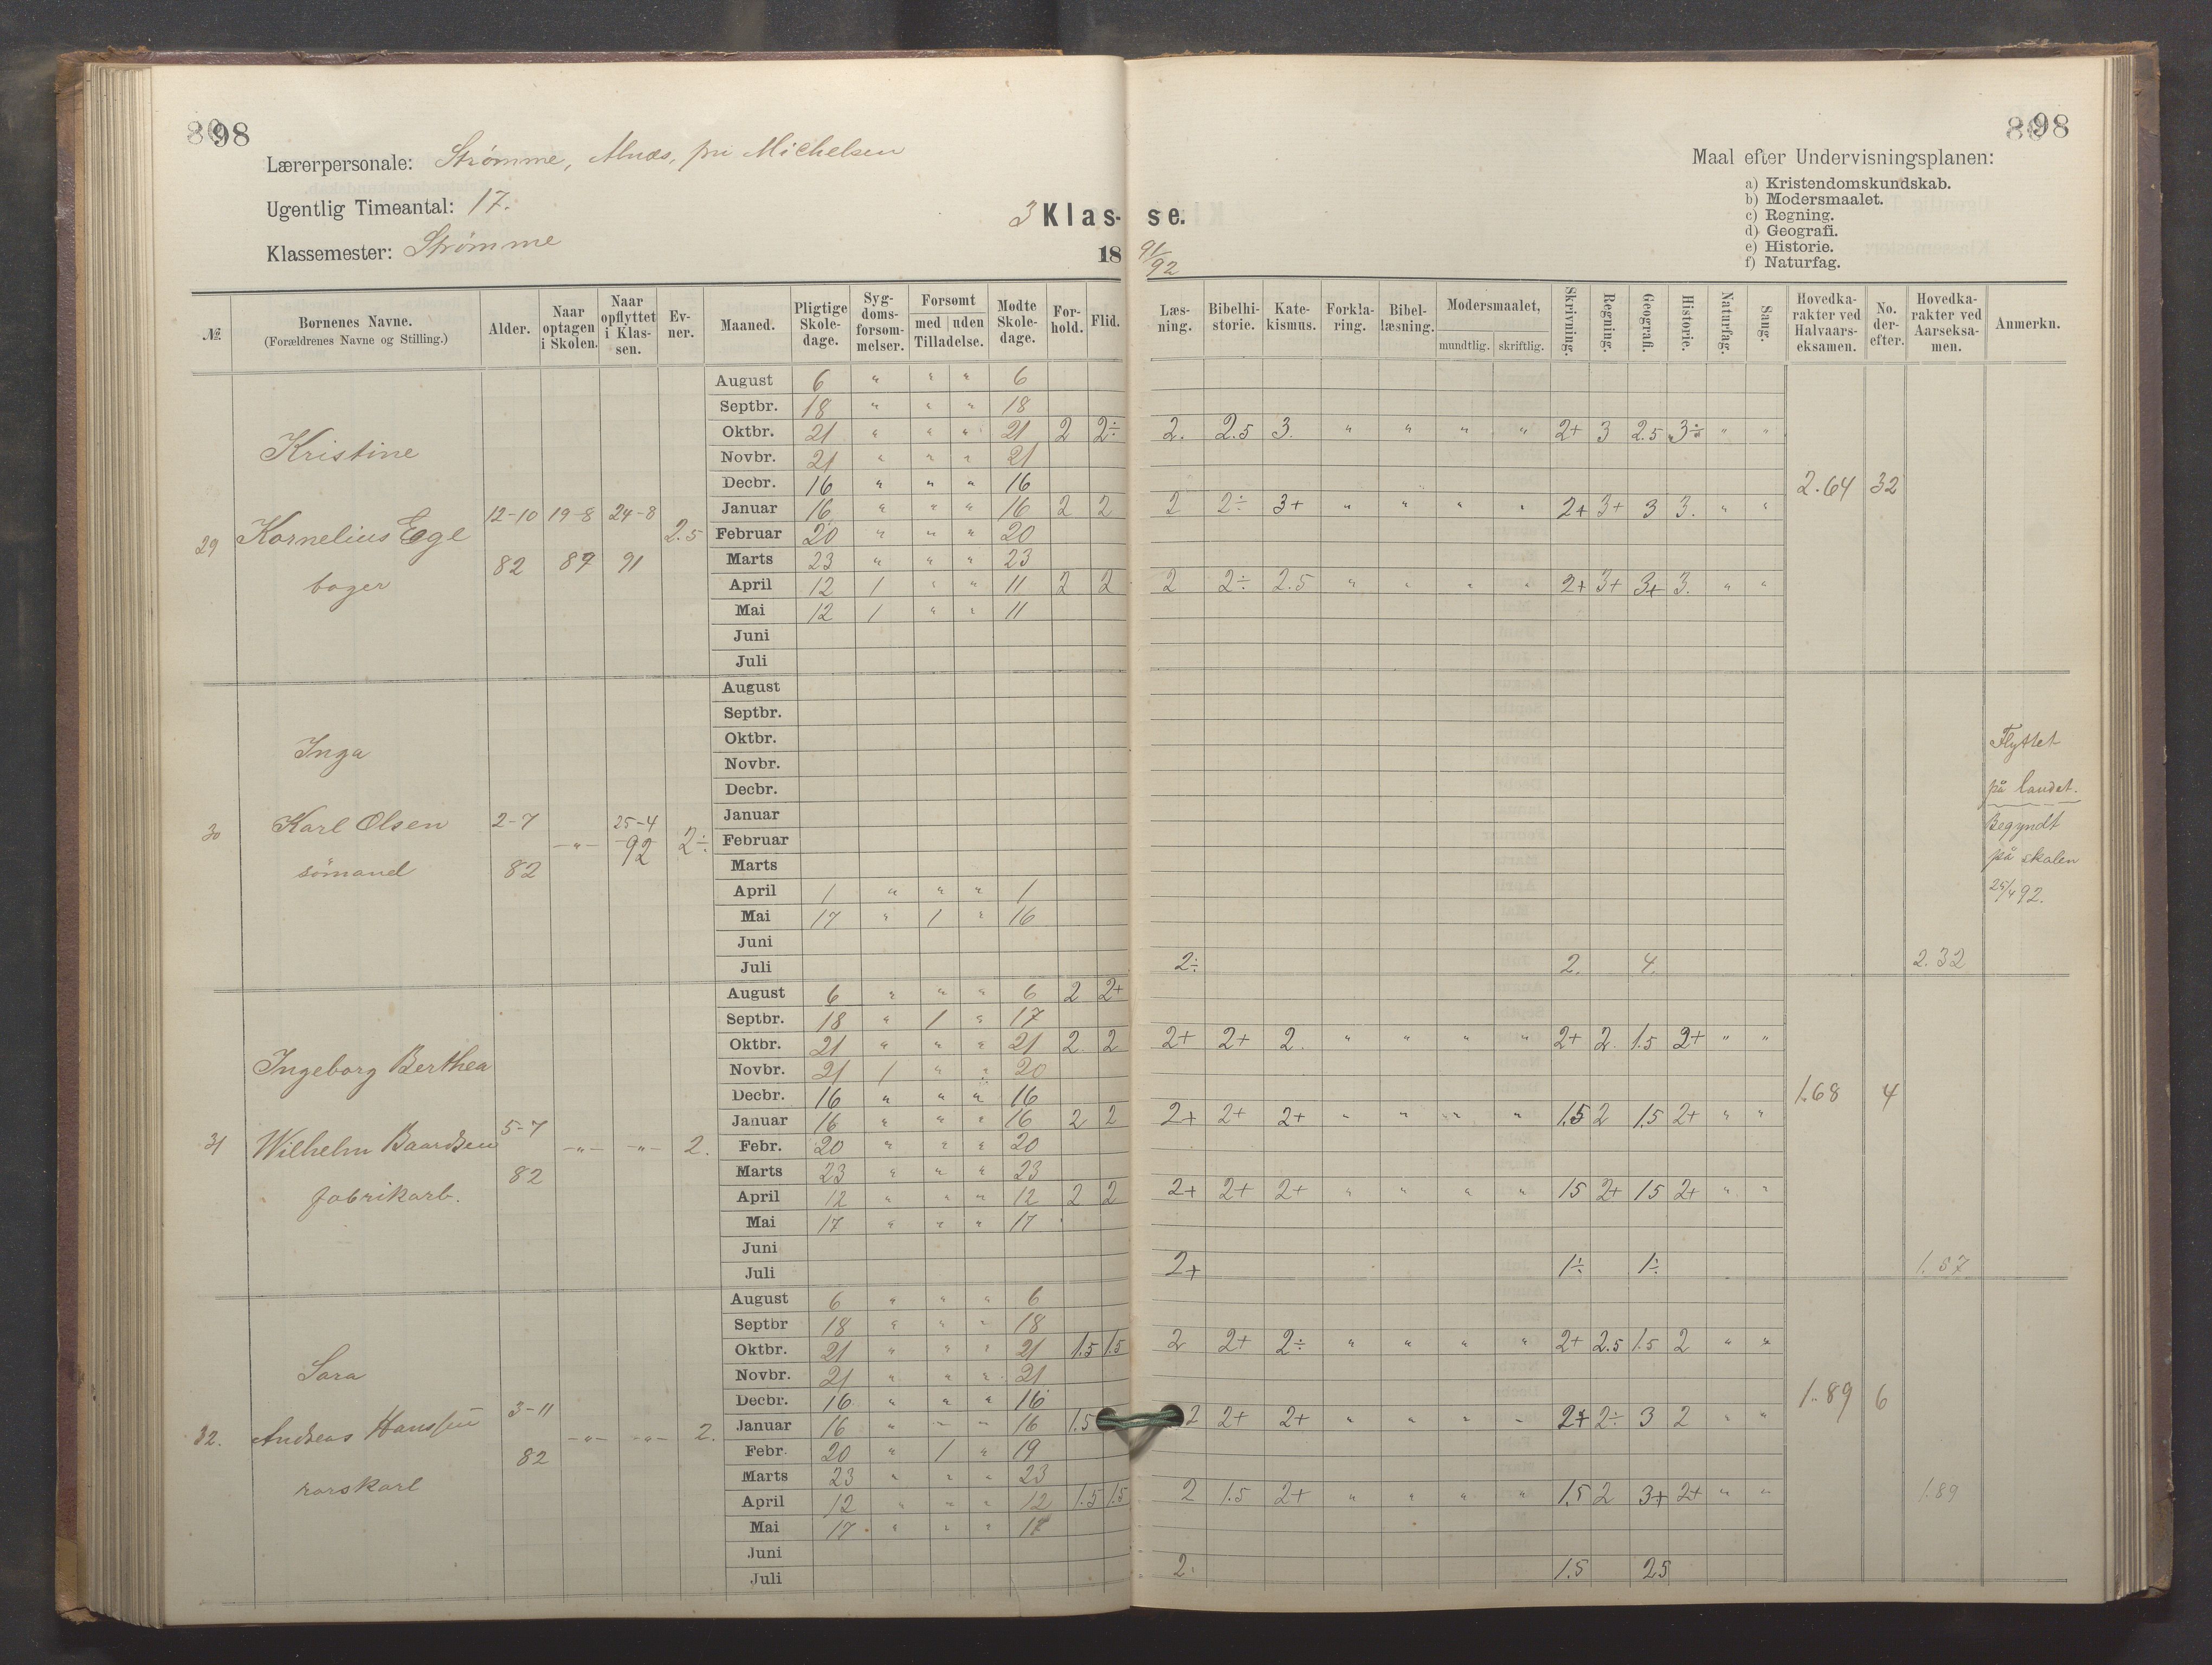 98
98
Lærerpersonale: Strømme, Alnæs, frü Michelsen
Ugentlig Timeantal: 17.
Klassemester: Strømme
3 Klas- se.
18 91/92
Maal efter Undervisningsplanen:
a) Kristendomskundskab.
b) Modersmaalet.
c) Regning.
d) Geografi.
e) Historie.
f) Naturfag.
№ Børnenes Navne. (Forældrenes Navne og Stilling.) Alder. Naar optagen i Skolen. Naar opflyttet i Klassen. Evner. Maaned. Pligtige Skoledage. Sygdomsforsømmelser. Forsømt med uden Tilladelse. Mødte Skoledage. Forhold. Flid. Læsning. Bibelhistorie. Katekismus. Forklaring. Bibellæsning. Modersmaalet, mundtlig. skriftlig. Skrivning. Regning. Geografi. Historie. Naturfag. Sang. Hovedkarakter ved Halvaarseksamen. No. derefter. Hovedkarakter ved Aarseksamen. Anmerkn.
29 Kristine
Kornelius Ege
bøger
12-10 82 19-8 89 24-8 91 2.5
August 6 " " " 6
Septbr. 18 " " " 18
Oktbr. 21 " " " 21 2 2÷ 2. 2.5 3. " " " " 2+ 3 2.5 3÷ " "
Novbr. 21 " " " 21
Decbr. 16 " " " 16 2.64 32
Januar 16 " " " 16 2 2 2 2÷ 3+ " " " " 2+ 3+ 3 3. " "
Februar 20 " " " 20
Marts 23 " " " 23
April 12 1 " " 11 2 2 2 2÷ 2.5 " " " " 2+ 3+ 3+ 3. " "
Mai 12 1 " " 11
Juni
Juli
30 Inga
Karl Olsen
sömand
2-7 82 -"- 25-4 92 2÷
August
Septbr.
Oktbr.
Novbr.
Decbr.
Januar
Februar
Marts
April 1 " " " 1
Mai 17 " 1 " 16
Juni
Juli 2÷ 2. 4. 2.32
Flyttet
på landet.
Begyndt
på skolen
25/4 92.
31 Ingeborg Berthea
Wilhelm Baardsen
fabrikarb.
5-7 82 -"- -"- 2.
August 6 " " " 6 2 2+
Septbr. 18 " 1 " 17
Oktbr. 21 " " " 21 2 2 2+ 2+ 2. " " " " 2+ 2 1.5 2+ " "
Novbr. 21 1 " " 20
Decbr. 16 " " " 16 1.68 4
Januar 16 " " " 16 2 2 2+ 2+ 2+ " " " " 1.5 2 1.5 2+ " "
Febr. 20 " " " 20
Marts 23 " " " 23
April 12 " " " 12 2 2 2+ 2+ 2+ " " " " 15 2+ 15 2+ " "
Mai 17 " " " 17
Juni
Juli 2+ 1÷ 1÷ 1.67
32. Sara
Andreas Hanssen
rorskarl
3-11 82 -"- -"- 2.
August 6 " " " 6
Septbr 18 " " " 18
Oktbr. 21 " " " 21 1.5 1.5 2 2+ 2÷ " " " " 2+ 2.5 1.5 2 " "
Novbr. 21 " " " 21
Decbr. 16 " " " 16 1.89 6
Januar 16 " " " 16 1.5 2 2+ 2+ " " " " 2+ 2÷ 3 2 " "
Febr. 20 " 1 " 19
Marts 23 " " " 23
April 12 " " " 12 1.5 1.5 2 1.5 2+ " " " " 1.5 2 3+ 2+ " " 1.89
Mai 17 " " " 17
Juni
Juli 2. 1.5 25